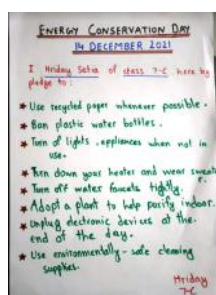 ENERGY CONSERVATION DAY
14 DECEMBER 2021
I Hriday Setia of class 7-C here by
pledge to :
★ Use recycled paper whenever possible.
★ Ban plastic water bottles.
★ Turn of lights, appliences when not in
use.
★ Turn down your heater and wear sweate
r.
★ Turn off water faucets tightly.
★ Adopt a plant to help purify indoor.
★ Unplug electronic devices at the
end of the day.
★ Use environmentally-safe cleaning
supplies.
Hriday
7-C